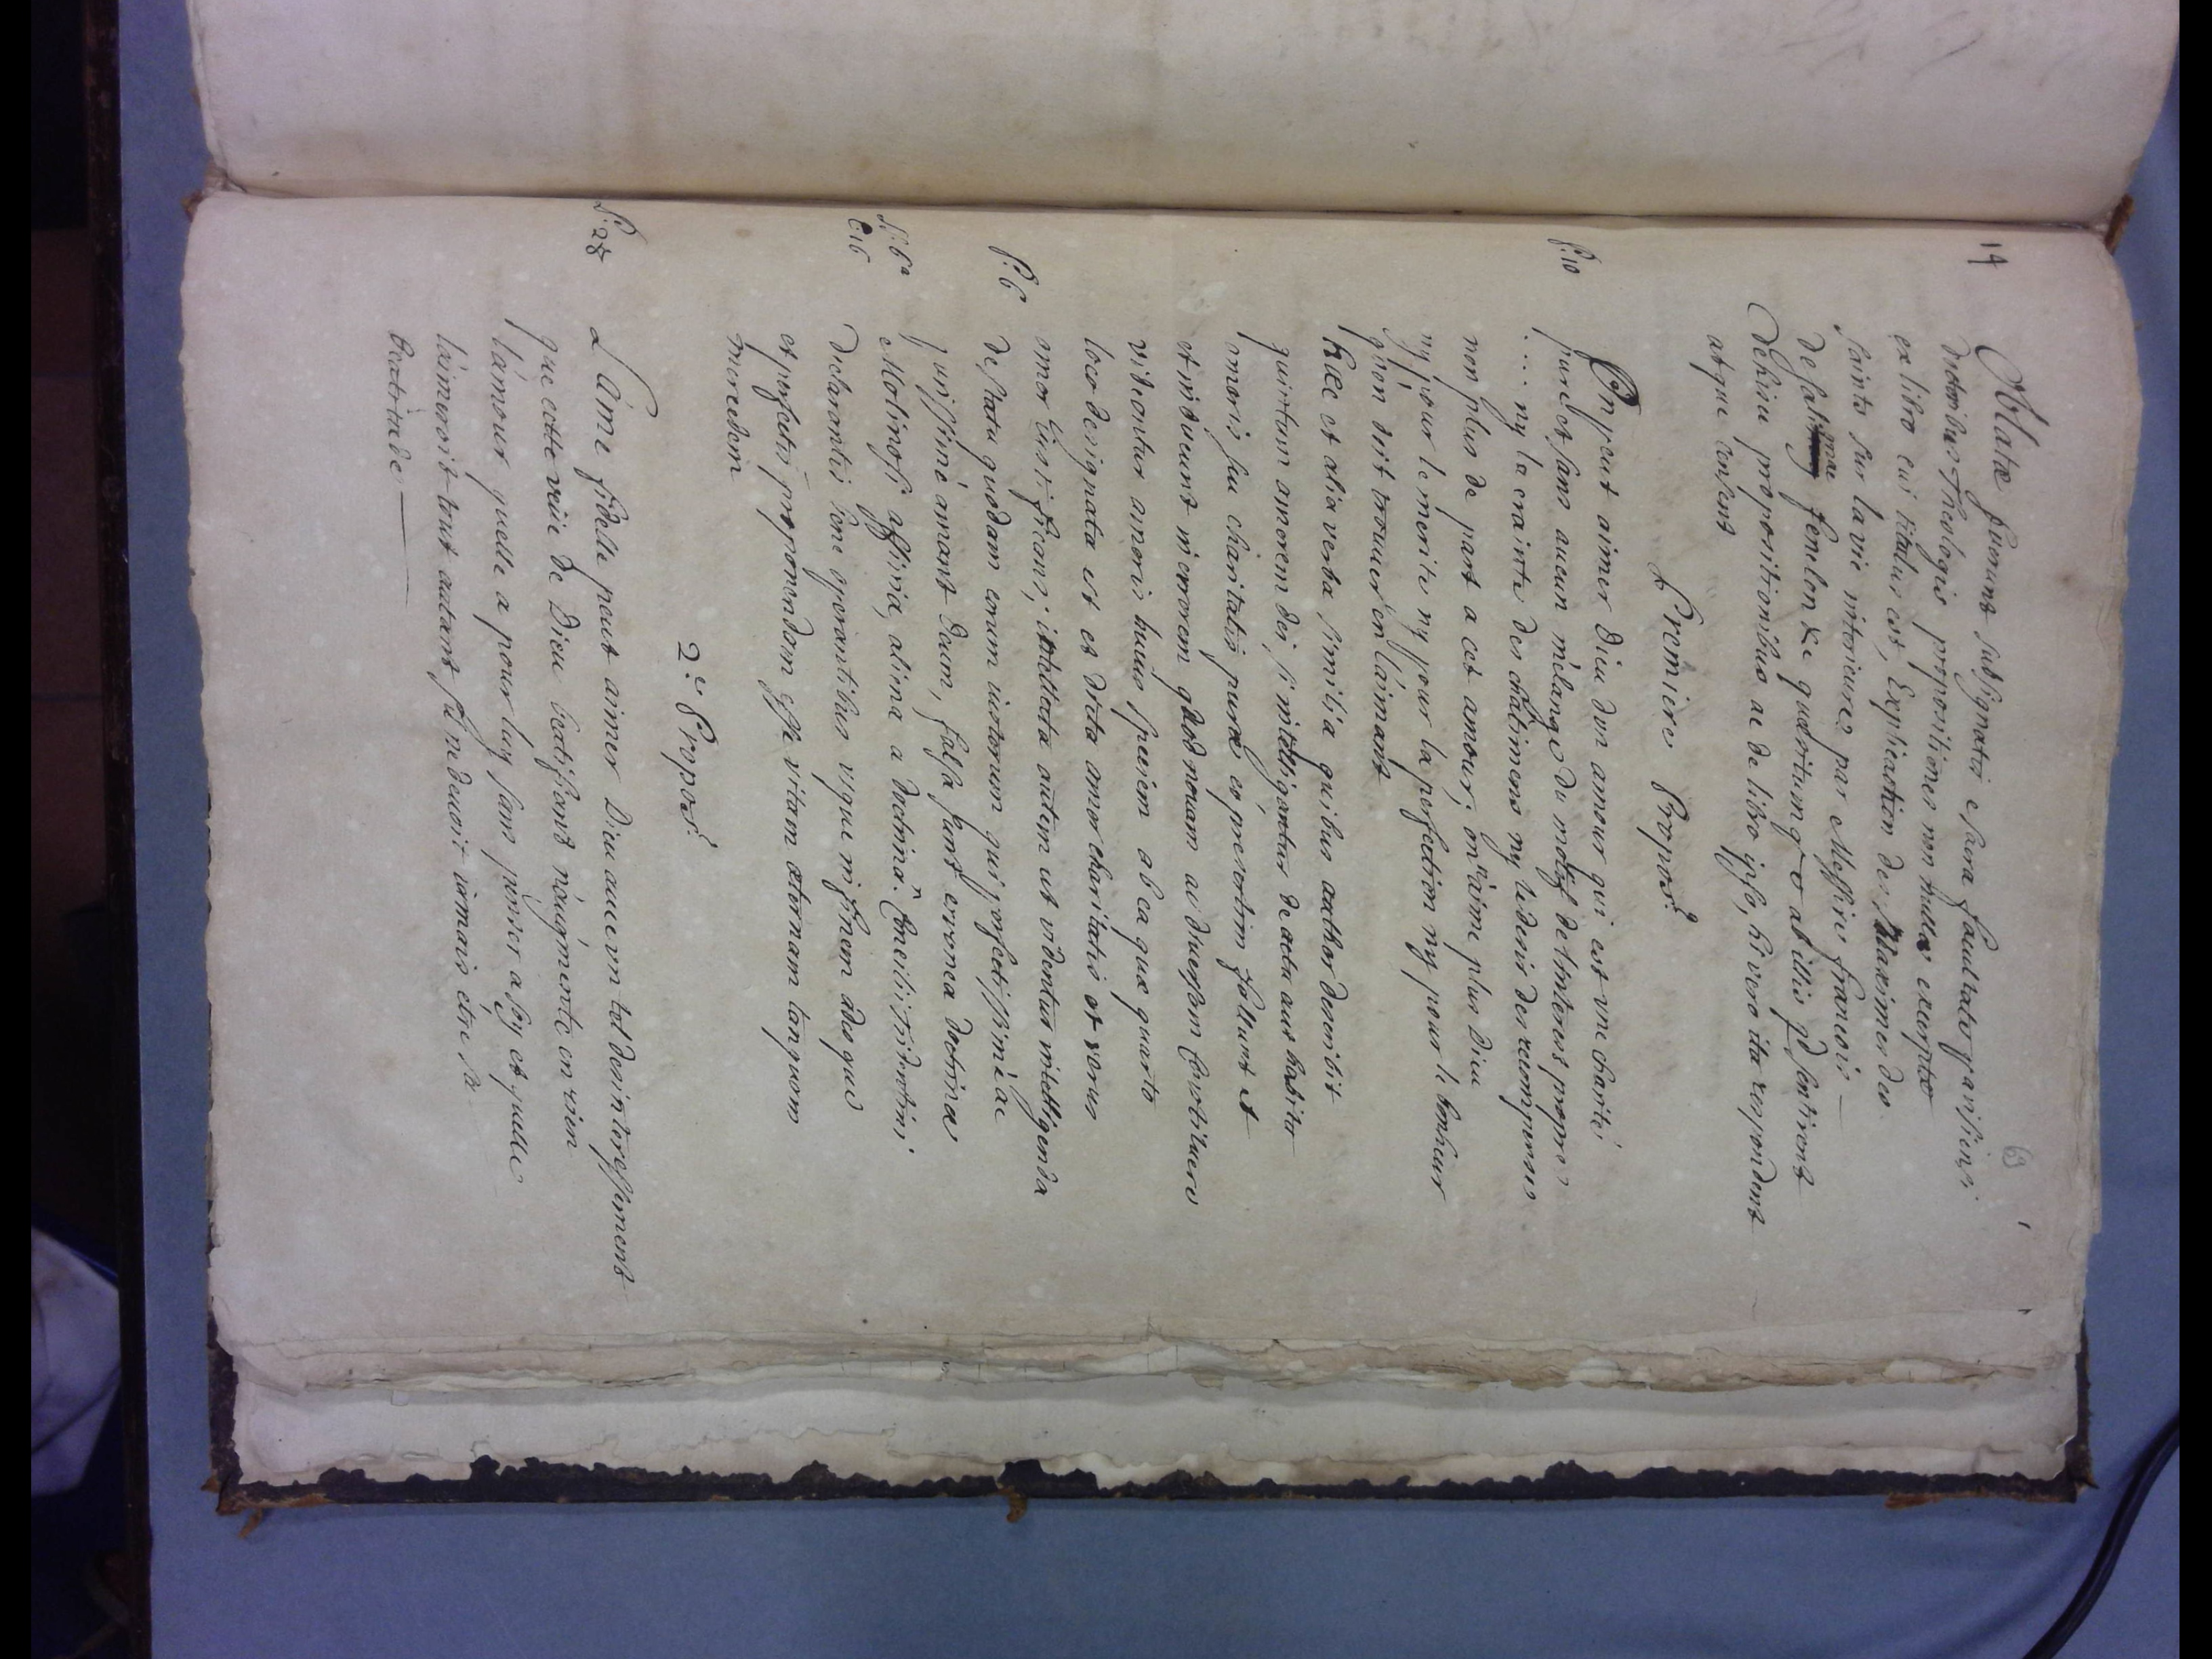 14
63
Oblatæ fuerunt subsignatis e sacra facultate parisiensi
doctoribus Theologis propositiones non nullæ excerptæ
ex libro cui titulus est, Explication des Maximes des
saints sur la vie interieures par Messire francois
de salignac fenelon &c quæsitumq ab illis qd sentirent
dehisce propositionibus ac de libro ipso, hi vero ita respondent
atque censent
Premiere Propos.
p. 10
On peut aimer Dieu dun amour qui est une charité
pure et sans aucun mélange du motif de linterest propre
.... ny la crainte des chatimens ny le desir des recompenses
non plus de part a cet amour; on n'aime plus Dieu
ny pour le merite ny pour la perfection ny pour le bonheur
qu'on doit trouver en l'aimant
hæc et alia verba similia quibus author describit
quintum amorem dei, si intelligantur de actu aut habitu
amoris seu charitatis puræ et presertim
et inducunt in errorem quod novam ac diversam constituere
videantur amoris huius speciem ab ea quæ quarto
loco designata est et dicta amor charitatis et verus
p. 6
amor iustificans; intellecta autem ut videntur intelligenda
de statu quodam eorum iustorum qui perfectissimè ac
purissimè amant Deum, falsa sunt erronea doctrinæ
Molinosi affinia, aliena a doctrina Concilii tridentini
s. 6ª
c. 16
declarantis bene operantibus usque in finem
et perfectis proponendam esse vitam æternam tanquam
mercedem
2.e Propos.
P. 28
L'Ame fidelle peut aimer Dieu avec un tel desinteressement
que cette veüe de Dieu beatifiant n'augmente en rien
l'amour quelle a pour luy sans penser a soy et quelle
l'aimeroit tout autant s'il ne devoit iamais étre sa
beatitude